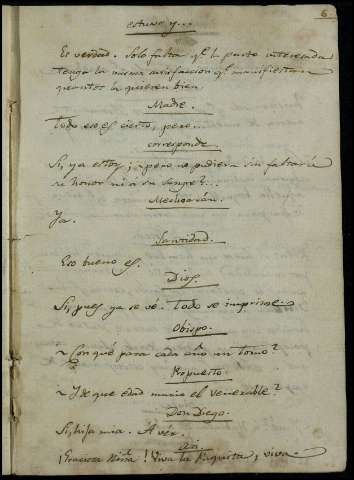 6
estuve y...
Es verdad. Solo falta q.e la parte interesada
tenga la misma satisfaccion q.e manifiestan
quantos la quieren bien.
Madre.
Todo eso es cierto, pero...
corresponde.
Si, ya estoy; ¿pero no pudiera sin faltar à
su honor ni à su sangre?...
Mediquران.
Ya.
Santidad.
Eso bueno es.
Dios.
Si, pues ya se vé. Todo se imprime.
Obispo.
¿Con què para cada año un tomo?
Propuesto.
¿Y de que edad murio el venerable?
Don Diego.
Si, hija mia. A vér.
así.
¡Graciosa Niña! ¡Viva la Paquita, viva